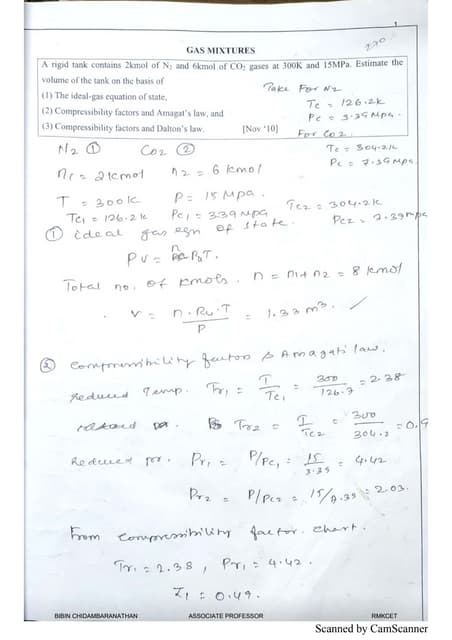 1
270
GAS MIXTURES
A rigid tank contains 2kmol of N₂ and 6kmol of CO₂ gases at 300K and 15MPa. Estimate the
volume of the tank on the basis of
(1) The ideal-gas equation of state,
(2) Compressibility factors and Amagat's law, and
(3) Compressibility factors and Dalton's law. [Nov '10]
Take For N2
Tc = 126.2k
Pc = 3.39 Mpa.
For Co2
Tc = 304.2k
Pc = 7.39 Mpa
N2 ① Co2 ②
n1 = 2 kmol n2 = 6 kmol
T = 300 K P = 15 Mpa.
Tc1 = 126.2 k Pc1 = 3.39 Mpa Tc2 = 304.2 k Pc2 = 7.39 Mpa
① ideal gas eqn of state.
PV = n RuT.
Total no. of kmols. n = n1 + n2 = 8 kmol
V = n.Ru.T / P = 1.33 m³.
② Compressibility factors & Amagats law.
Reduced Temp. Tr1 = T / Tc1 = 300 / 126.2 = 2.38
Tr2 = T / Tc2 = 300 / 304.2 = 0.9
Reduced pr. Pr1 = P/Pc1 = 15 / 3.39 = 4.42
Pr2 = P/Pc2 = 15/7.39 = 2.03.
From Compressibility factor chart.
Tr1 = 2.38, Pr1 = 4.42.
Z1 = 0.49.
BIBIN CHIDAMBARANATHAN ASSOCIATE PROFESSOR RMKCET
Scanned by CamScanner